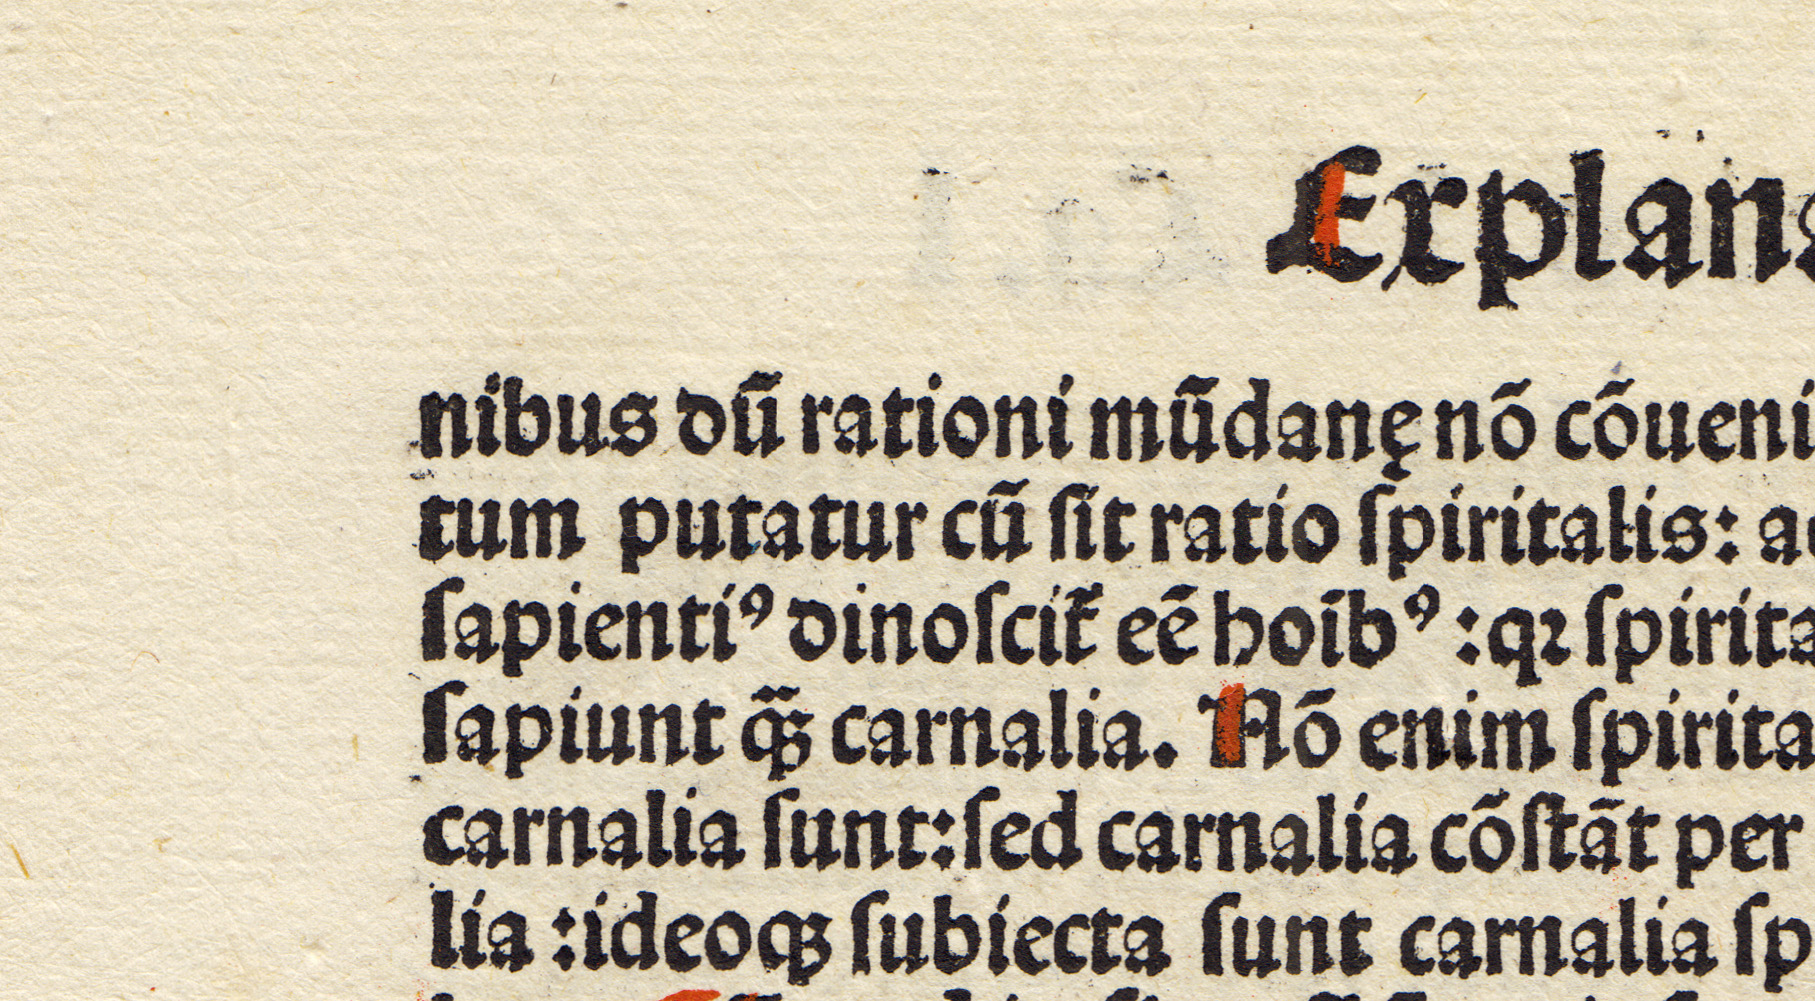 Explana
nibus dū rationi mūdanę nō cōueni
tum putatur cū ſit ratio ſpiritalis: a
ſapientiꝰ dinoſcit᷑ eē hoībꝰ :qꝛ ſpirita
ſapiunt q̄ꝫ carnalia. Nō enim ſpirita
carnalia ſunt:ſed carnalia cōſtāt per
lia :ideoqꝫ ſubiecta ſunt carnalia ſp